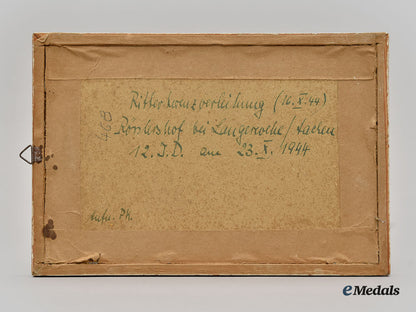 Ritterkreuzverleihung (16.X.44)
468
Rösslershof bei Langerwehe/Aachen
12. I.D. am 23.X.1944
Aufn. Ph.
eMedals